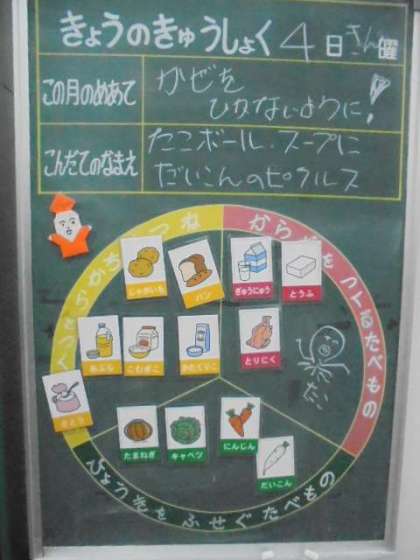 きょうのきゅうしょく 4日 きん曜
この月のめあて
かぜを
ひかないように!
こんだてのなまえ
たこボール・スープに
だいこんのピクルス
ちからやねつ
からだをつくるたべもの
じゃがいも
パン
ぎゅうにゅう
とうふ
あぶら
こむぎこ
かたくりこ
とりにく
たこ
さとう
たまねぎ
キャベツ
にんじん
だいこん
びょう気をふせぐたべもの